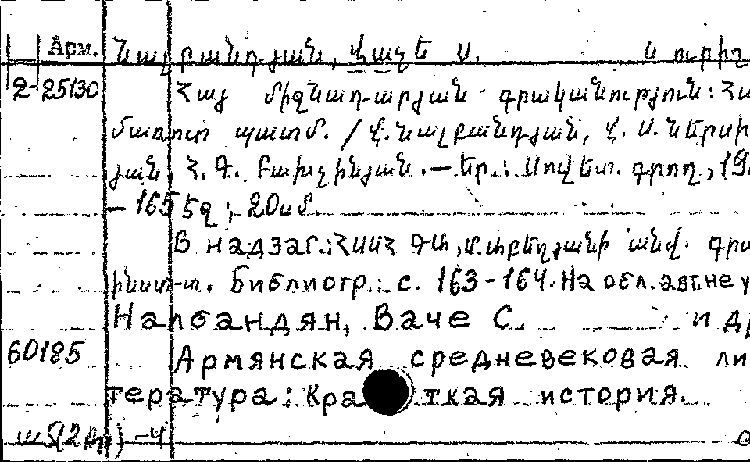 Арм. Նալբանդյան, Վաչե Ս. և ուրիշ
2-25130 Հայ միջնադարյան գրականություն: Հա
մառոտ պատմ. / Վ. Նալբանդյան, Վ. Ս. Ներսիս
յան, Հ. Գ. Բախչինյան. — Եր.: Սովետ. գրող, 19
— 165 էջ; 20սմ.
В надзаг.: ՀՍՍՀ ԳԱ, Մ. Աբեղյանի անվ. գրա
ինստ-տ. Библиогр.: с. 163-164. На обл. авт. не у
Налбандян, Ваче С. и др
60185 Армянская средневековая ли
тература: Кра ткая история.